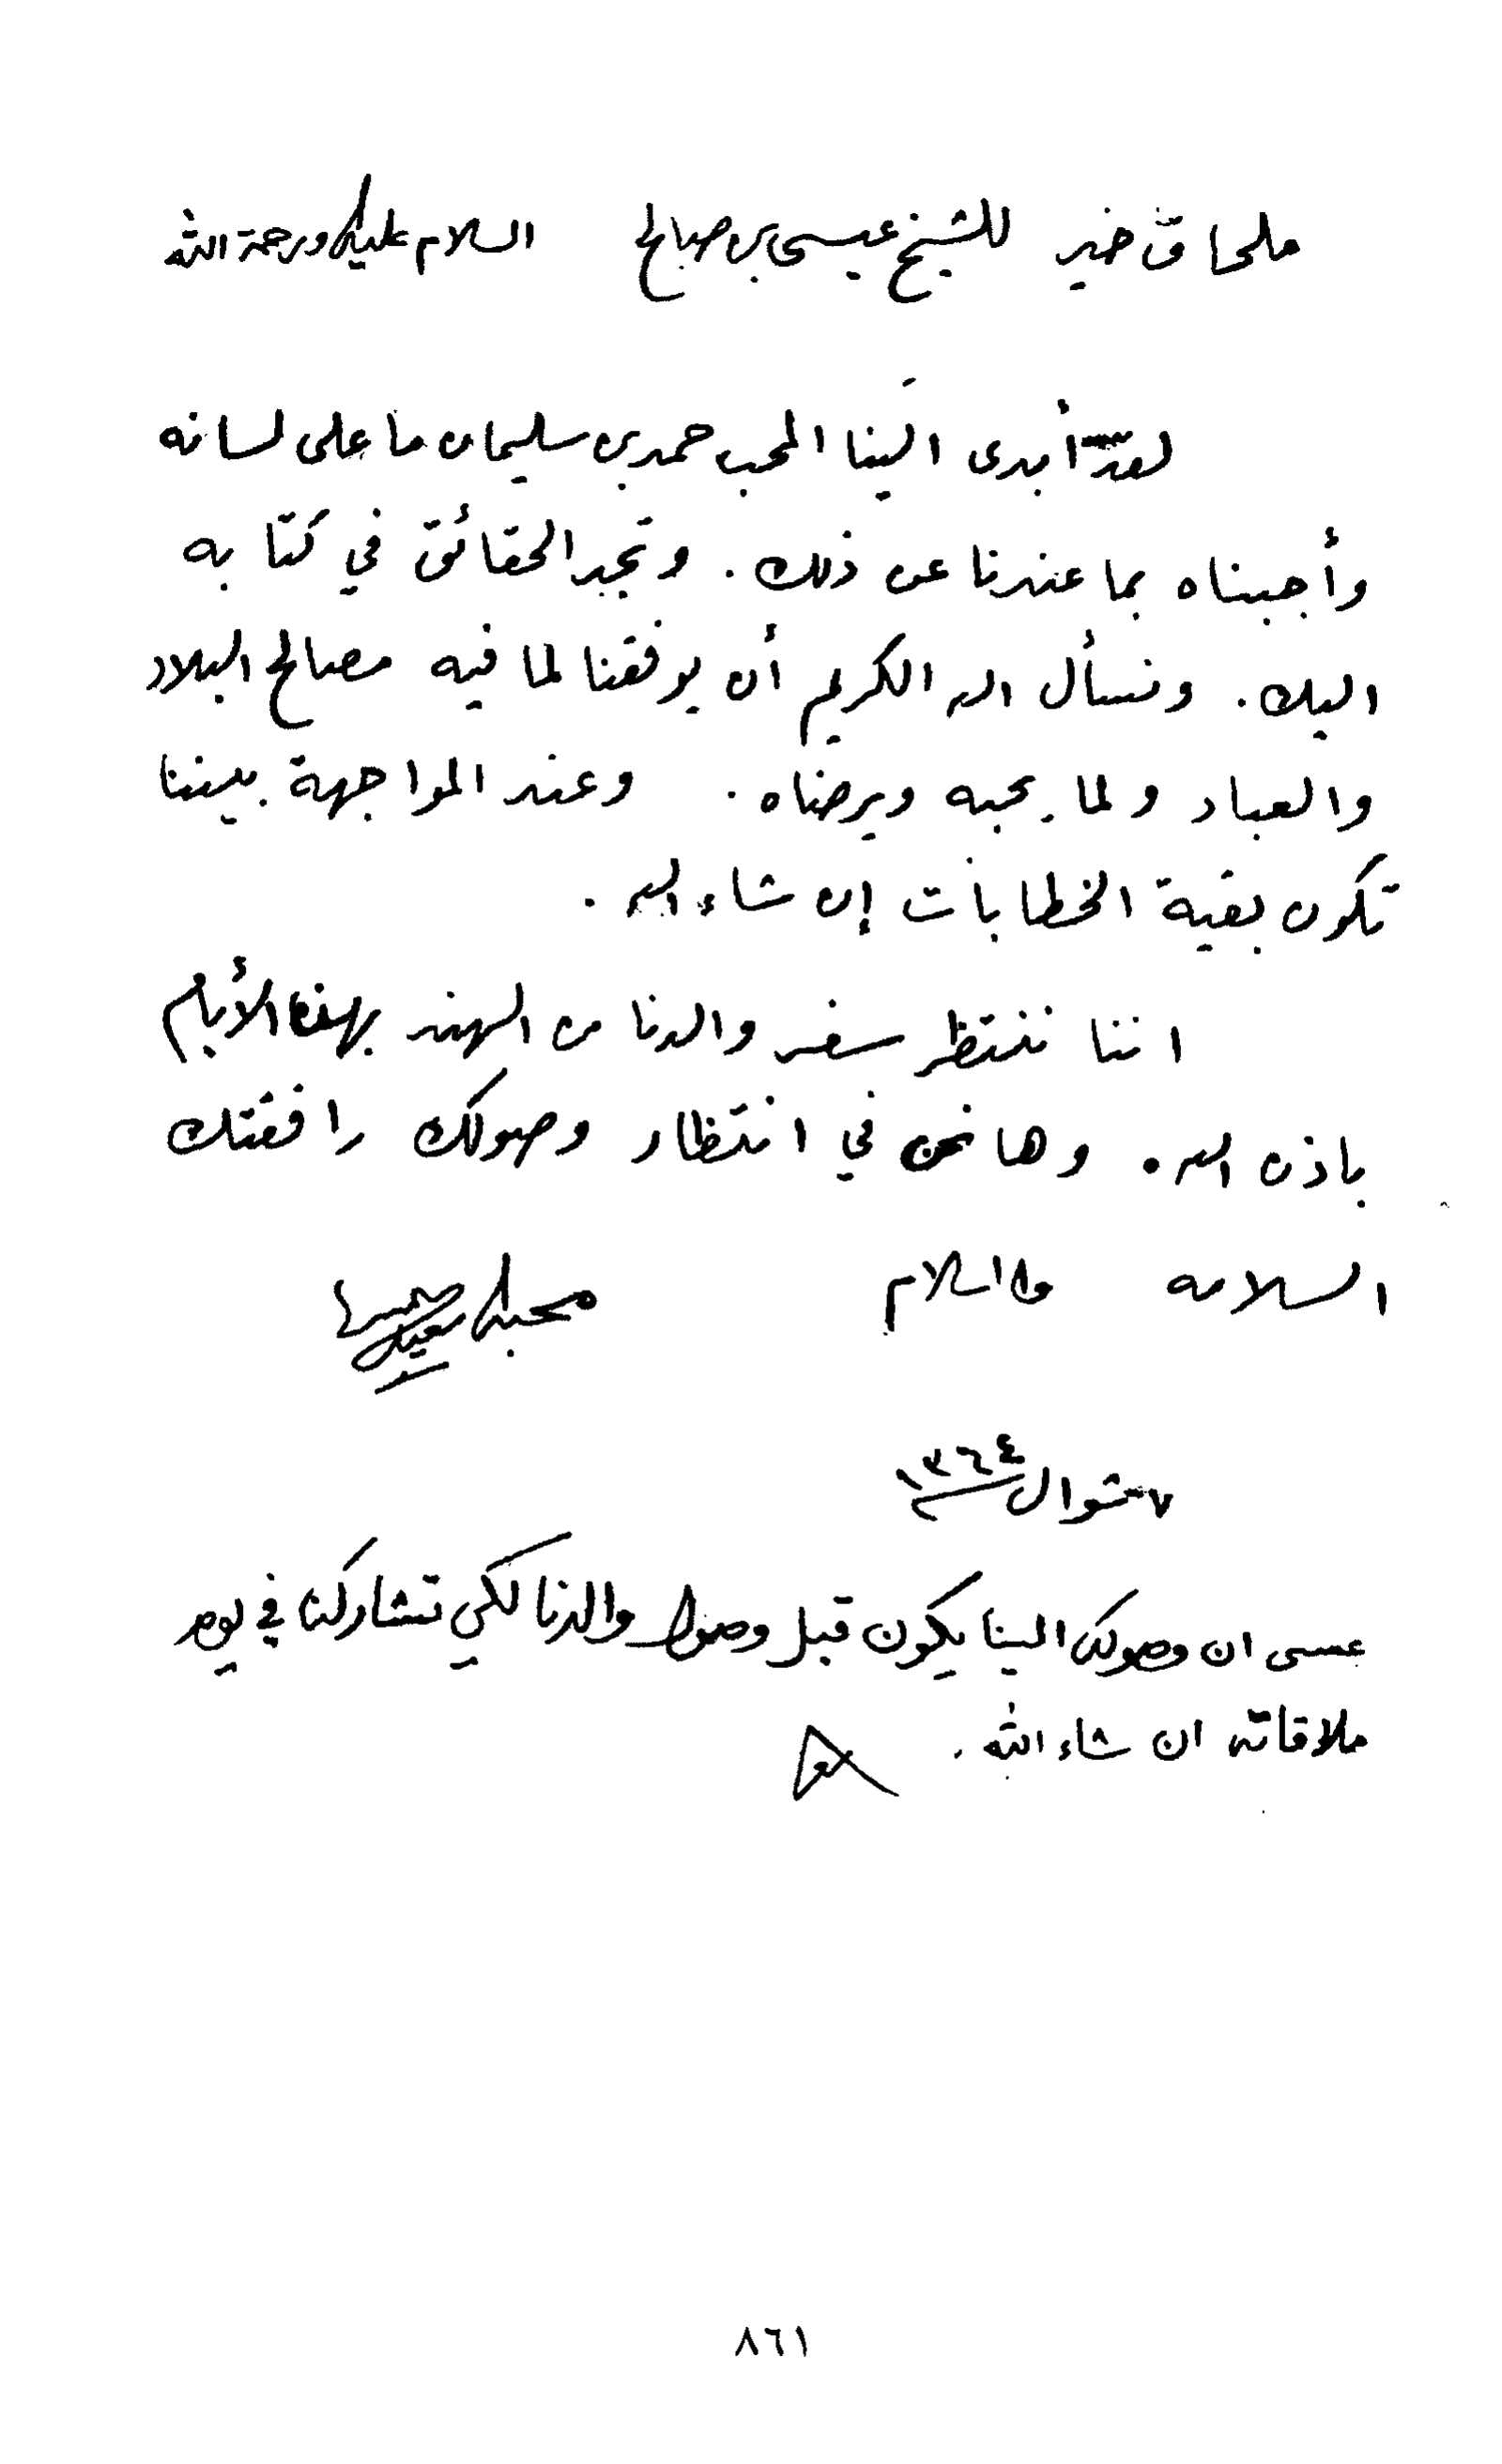 ملحاق خير للشيخ عيسى بن صالح السلام عليك ورحمة الله
لقد أبدى الينا المحب حمد بن سليمان ما على لسانه
وأجبناه بما عندنا عن ذلك. وتجد الحقائق في كتابه
اليك. ونسأل الله الكريم أن يوفقنا لما فيه مصالح البلاد
والعباد ولما يحبه ويرضاه. وعند المواجهة بيننا
تكون بقية الخطابات إن شاء الله.
اننا ننتظر سفر والدنا من الهند بهذه الأيام
باذن الله. وها نحن في انتظار وصولك رافقتك
السلامه والسلام محبك سعيد
٧ شوال ١٣٦٤
عسى ان وصولك الينا يكون قبل وصول والدنا لكي تشاركنا في يوم
ملاقاته ان شاء الله.
٨٦١